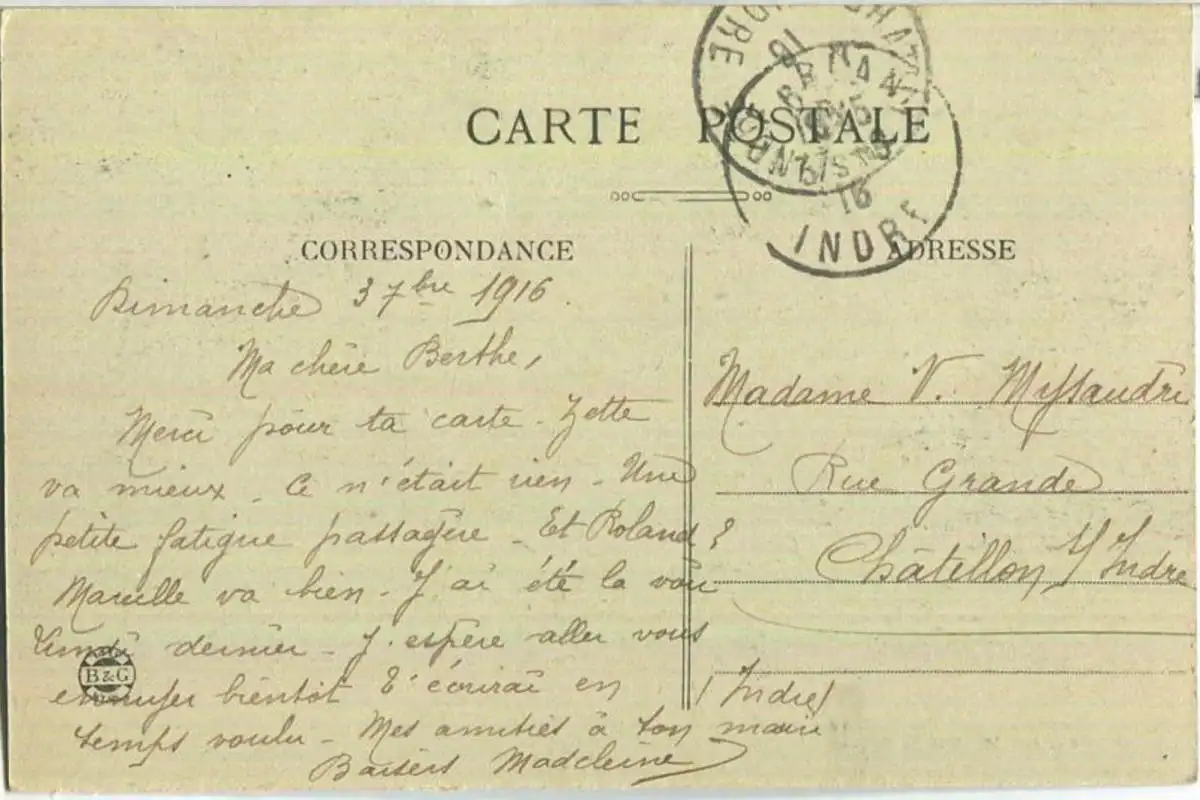 CARTE POSTALE
CORRESPONDANCE
Dimanche 3 7bre 1916.
Ma chère Berthe,
Merci pour ta carte. Zette
va mieux. Ce n'était rien. Une
petite fatigue passagère. Et Roland?
Marcelle va bien. J'ai été la voir
dernier. J'espère aller vous
bientôt t'écrirai en
temps voulu. Mes amitiés à ton mari
Baisers Madeleine
B&G
ADRESSE
Madame V.
Rue Grande
Châtillon s/Indre
(Indre)
INDRE
16